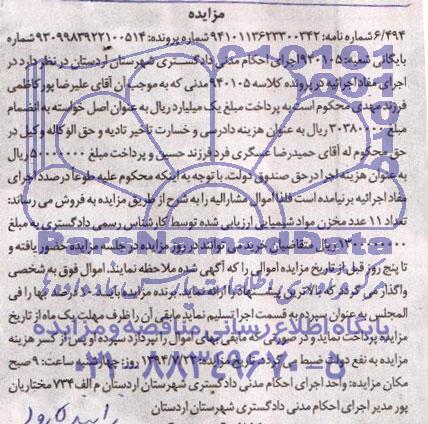 مزایده
۶/۴۹۴ شماره نامه: ۹۴۱۰۱۱۳۶۲۳۳۰۰۳۴۲ شماره پرونده: ۹۳۰۹۹۸۳۹۲۲۱۰۰۵۱۴ شماره
بایگانی شعبه: ۹۴۰۱۰۵ اجرای احکام مدنی دادگستری شهرستان اردستان در نظر دارد در
اجرای مفاد اجرائیه در پرونده کلاسه ۹۴۰۱۰۵ مدنی که به موجب آن آقای علیرضا پور کاظمی
فرزند مهدی محکوم است به پرداخت مبلغ یک میلیارد ریال به عنوان اصل خواسته به انضمام
مبلغ ۳۰۳۸۰۰۰۰ ریال به عنوان هزینه دادرسی و خسارت تاخیر تادیه و حق الوکاله وکیل در
حق محکوم له آقای حمیدرضا عسگری فرد فرزند حسین و پرداخت مبلغ ریال
به عنوان هزینه اجرا در حق صندوق دولت. با توجه به اینکه محکوم علیه طوعا درصدد اجرای
مفاد اجرائیه برنیامده است فلذا اموال مشارالیه را به شرح از طریق مزایده به فروش می رساند:
تعداد ۱۱ عدد مخزن مواد شیمیایی ارزیابی شده توسط کارشناس رسمی دادگستری به مبلغ
ریال متقاضیان خرید می توانند در روز مزایده در جلسه مزایده حضور یافته و
تا پنج روز قبل از تاریخ مزایده اموالی را که آگهی شده ملاحظه نمایند. اموال فوق به شخصی
واگذار می گردد که بالاترین پیشنهاد را ارائه نماید. برنده مزایده بایستی ۱۰ درصد بها را فی
المجلس به عنوان سپرده به قسمت اجرا تسلیم نماید مابقی آن را ظرف مهلت یک ماه از تاریخ
مزایده پرداخت نماید و در صورتی که مابقی بهای اموال را نپردازد سپرده او پس از کسر هزینه
مزایده به نفع دولت ضبط می گردد تاریخ مزایده: ۱۳۹۴/۷/۲۲ روز: چهارشنبه ساعت: ۹ صبح
مکان مزایده: واحد اجرای احکام مدنی دادگستری شهرستان اردستان م الف ۷۳۴ مختاریان
پور مدیر اجرای احکام مدنی دادگستری شهرستان اردستان
ParsNamadData
پایگاه اطلاع رسانی مناقصه و مزایده
۰۲۱-۸۸۳۴۹۶۷۰-۵